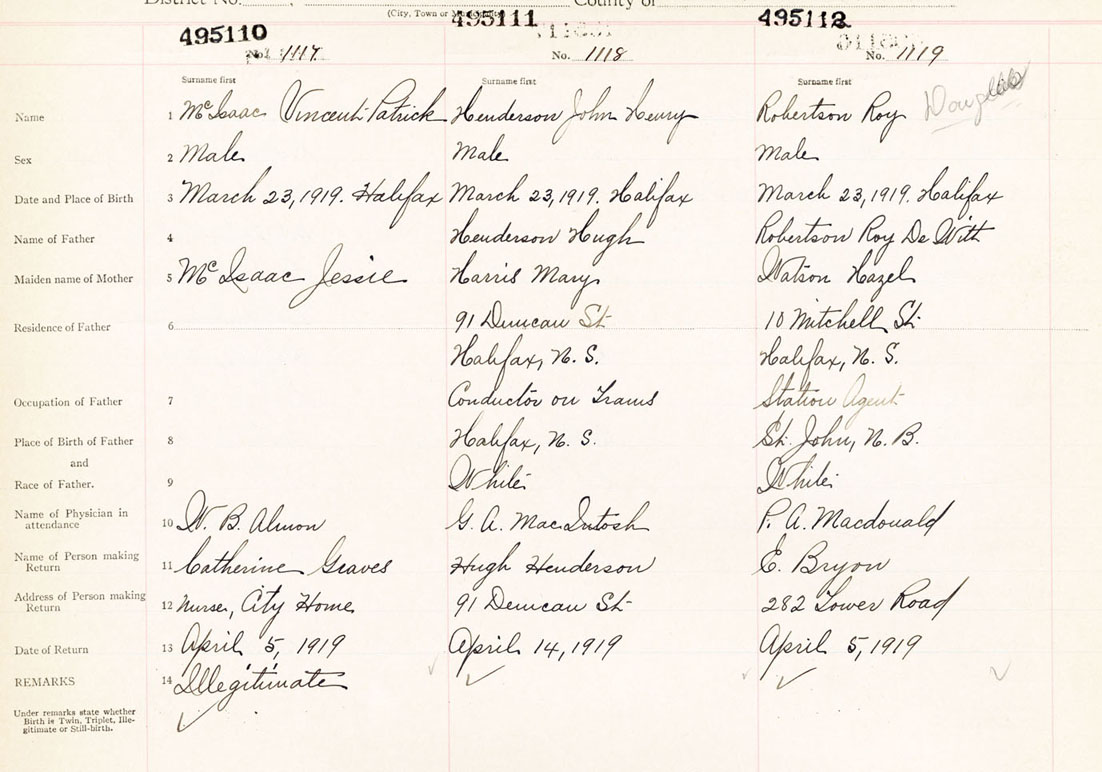 District No. County of
(City, Town or
495110 495111 495112
No. 1117 No. 1118 No. 1119
Surname first Surname first Surname first
Name 1 McIsaac Vincent Patrick Henderson John Henry Robertson Roy Douglas
Sex 2 Male Male Male
Date and Place of Birth 3 March 23, 1919. Halifax March 23, 1919. Halifax March 23, 1919. Halifax
Name of Father 4 Henderson Hugh Robertson Roy De Witt
Maiden name of Mother 5 McIsaac Jessie Harris Mary Watson Hazel
Residence of Father 6 91 Duncan St. 10 Mitchell St.
Halifax, N. S. Halifax, N. S.
Occupation of Father 7 Conductor on Trams Station Agent
Place of Birth of Father 8 Halifax, N. S. St. John, N. B.
and
Race of Father. 9 White White
Name of Physician in
attendance 10 W. B. Almon G. A. MacIntosh P. A. Macdonald
Name of Person making
Return 11 Catherine Graves Hugh Henderson E. Bryon
Address of Person making
Return 12 Nurse, City Home 91 Duncan St. 282 Tower Road
Date of Return 13 April 5, 1919 April 14, 1919 April 5, 1919
REMARKS 14 Illegitimate
Under remarks state whether
Birth is Twin, Triplet, Ille-
gitimate or Still-birth.